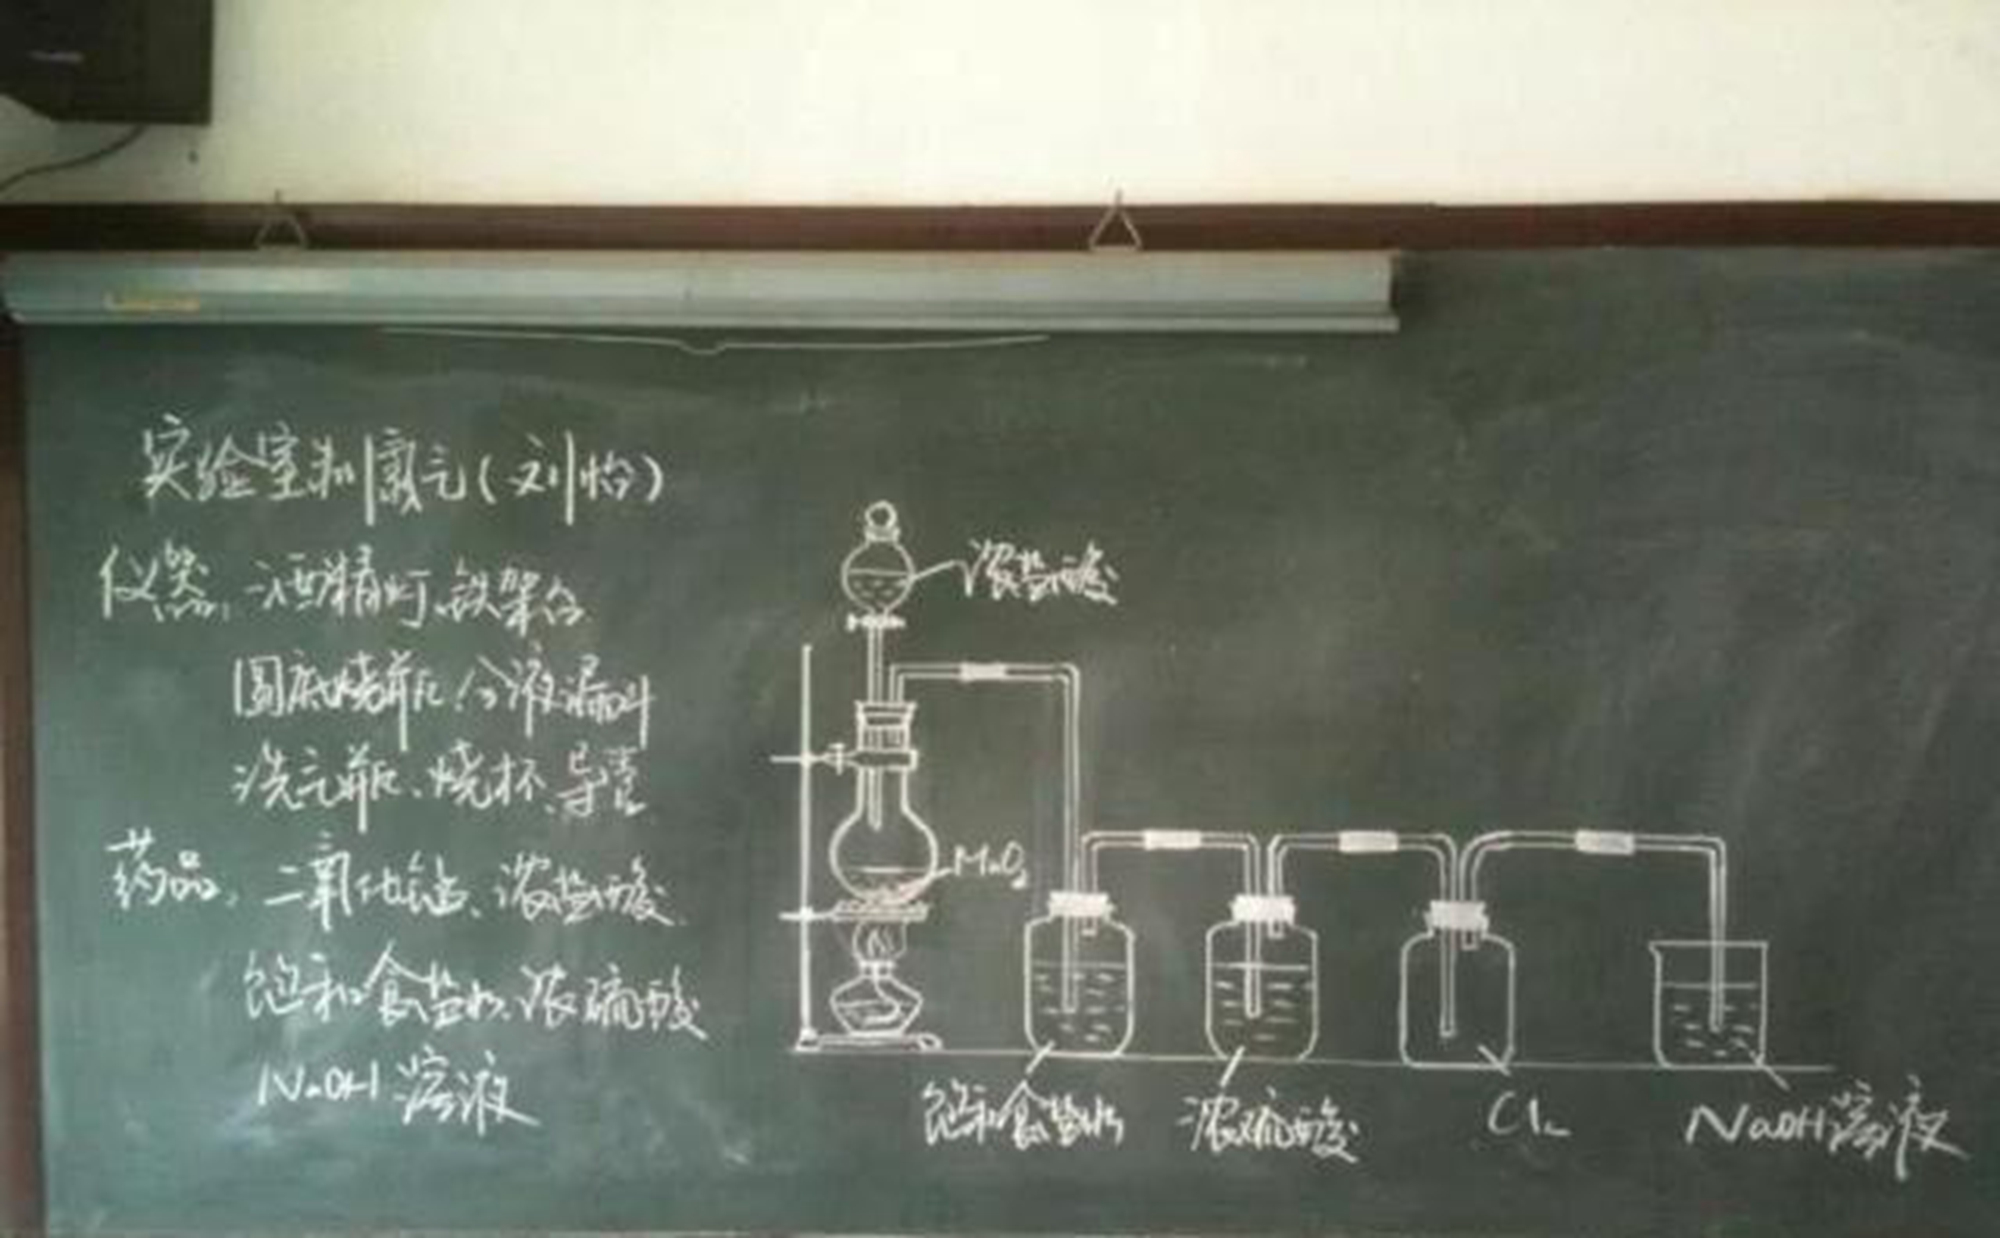 实验室制氯气(刘怡)
仪器:酒精灯、铁架台
圆底烧瓶、分液漏斗
洗气瓶、烧杯、导管
药品:二氧化锰、浓盐酸、
饱和食盐水、浓硫酸
NaOH溶液
浓盐酸
MnO₂
饱和食盐水
浓硫酸
Cl₂
NaOH溶液